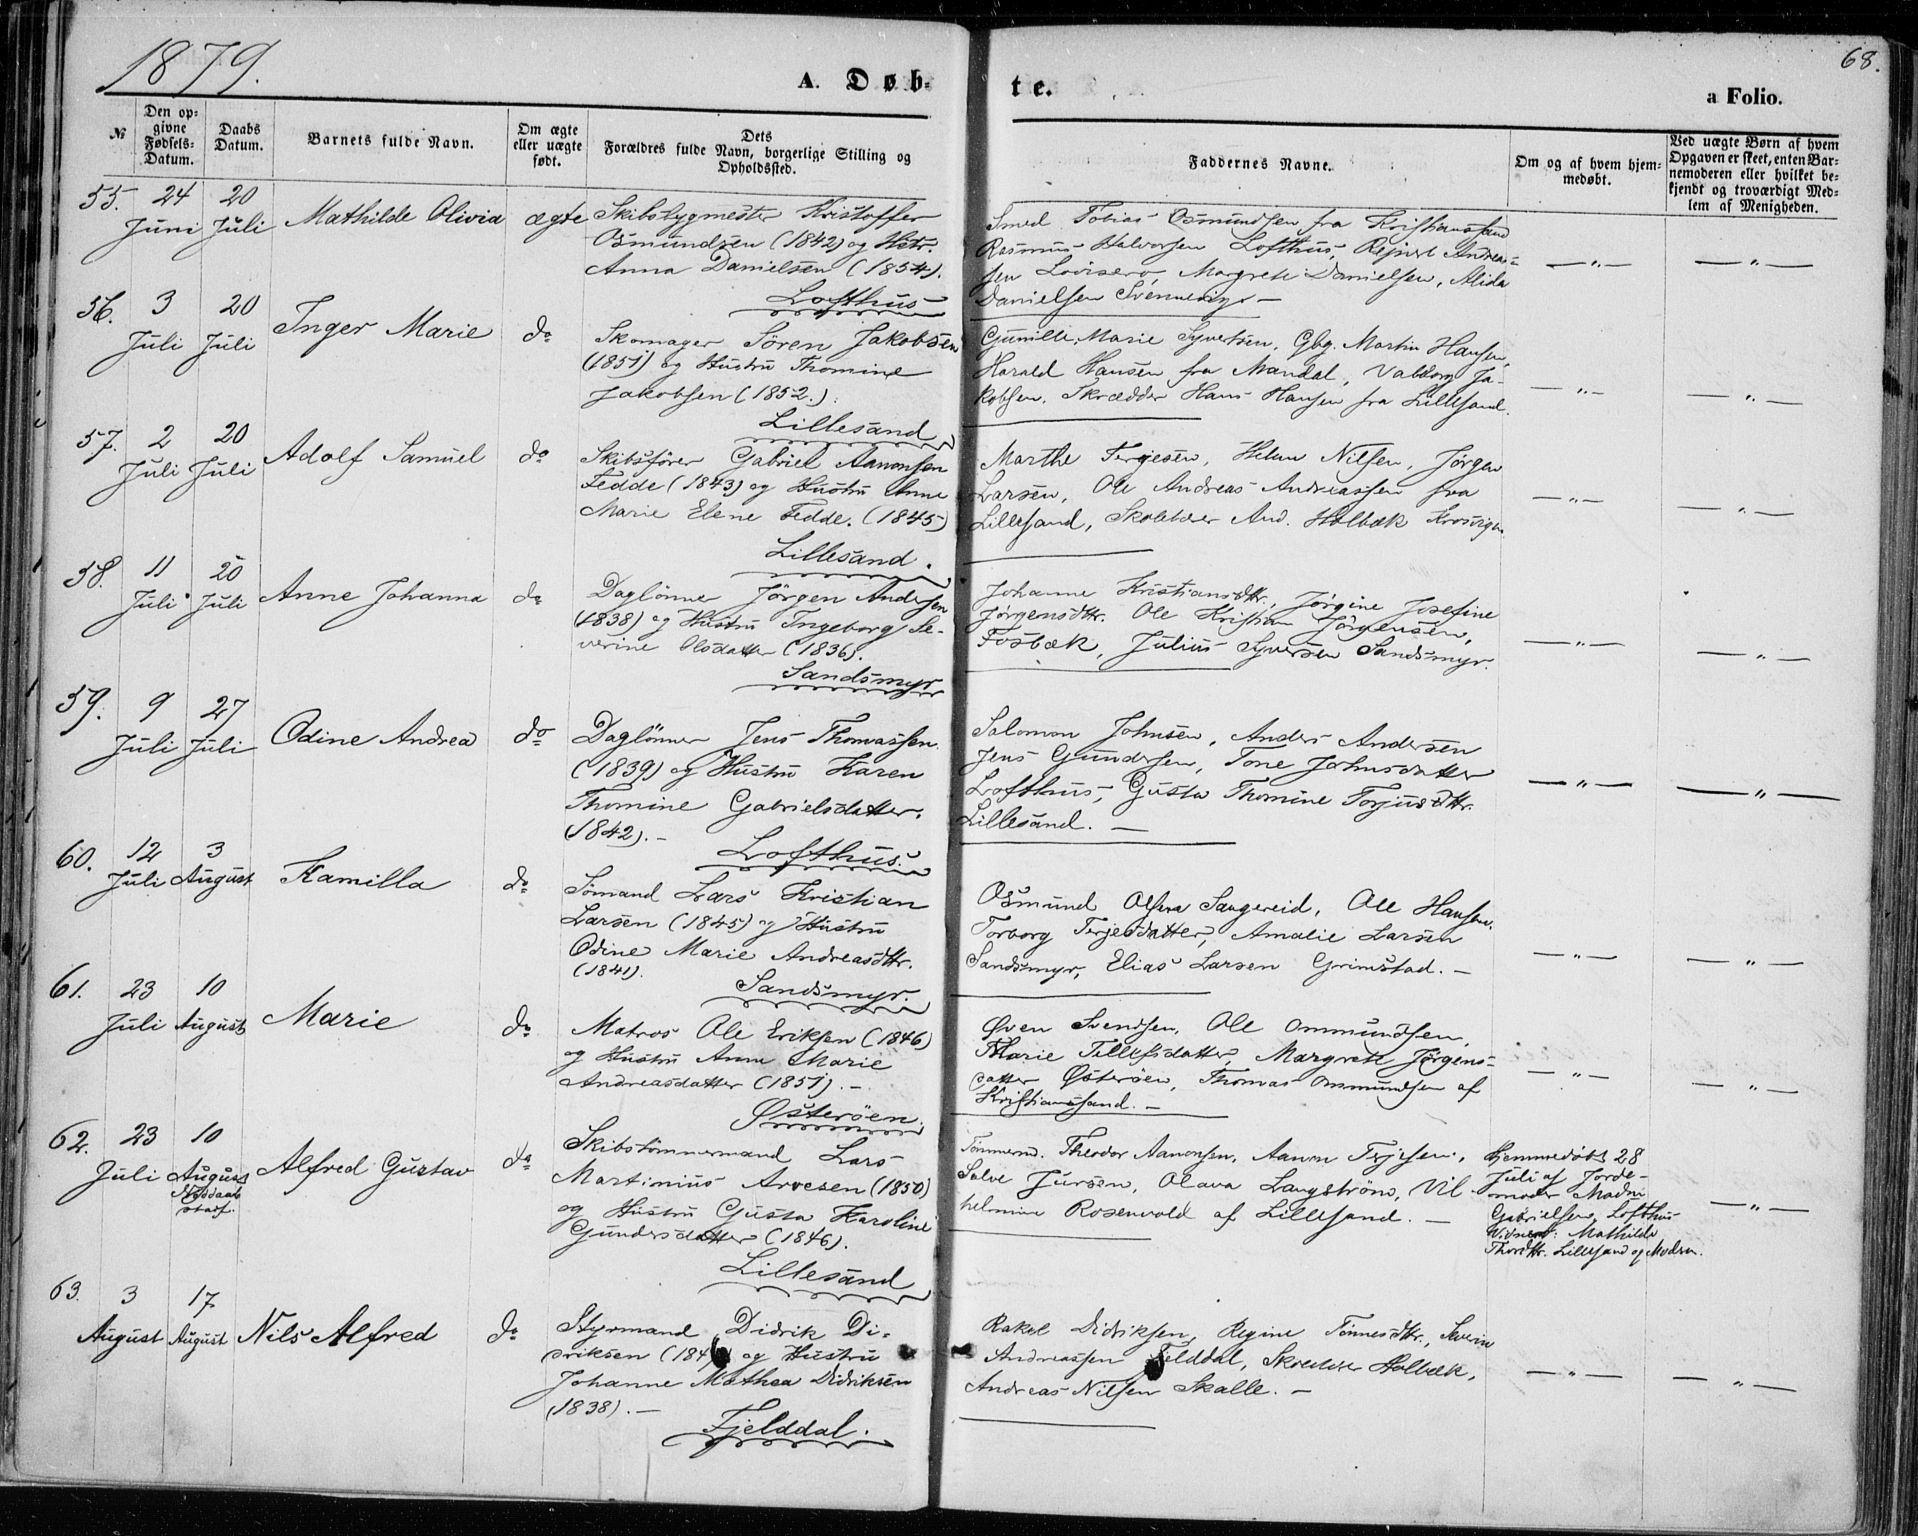 1879.
A. Døb-
te.
68.
a Folio.
№
Den op-
givne
Fødsels-
Datum.
Daabs
Datum.
Barnets fulde Navn.
Om ægte
eller uægte
født.
Dets
Forældres fulde Navn, borgerlige Stilling og
Opholdssted.
Faddernes Navne.
Om og af hvem hjem-
medøbt.
Ved uægte Børn af hvem
Opgaven er skeet, enten Bar-
nemoderen eller hvilket be-
kjendt og troværdigt Med-
lem af Menigheden.
55. 24 20
Juni Juli Mathilde Olivia ægte
Skibstygmester Kristoffer
Osmundsen (1842) og Hstr.
Anna Danielsen (1854).
Lofthus
Smed Tobias Osmundsen fra Kristianssand
Rasmus Halvorsen Lofthus, Rejnert Andreas-
sen Lovisero, Margrete Danielsen, Alida
Danielsen Svennevig. —
— " —
— " —
56. 3 20
Juli Juli Inger Marie do
Skomager Sören Jakobsen
(1851) og Hustru Thomine
Jakobsen (1852.).
Lillesand
Gunille Marie Syvertsen, Gbg. Martin Hansen,
Harald Hansen fra Mandal, Valborg Ja-
kobsen, Skrædder Hans Hansen fra Lillesand.
— " —
— " —
57. 2 20
Juli Juli Adolf Samuel do
Skibsförer Gabriel Aanonsen
Fedde (1843) og Hustru Anne
Marie Elene Fedde. (1845)
Lillesand.
Marthe Terjesen, Helene Nilsen, Jörgen
Larsen, Ole Andreas Andreassen fra
Lillesand, Skolelærer And. Holbæk
— " —
— " —
58. 11 20
Juli Juli Anne Johanna do
Daglönner Jörgen Andersen
(1838) og Hustru Ingeborg Se-
verine Olsdatter (1836).
Sandsmyr
Johanne Kristiansdtr, Jørgine Josefine
Jørgensdtr. Ole Kristian Jörgensen,
Fosbæk, Julius Syversen Sandsmyr.
— " —
— " —
59. 9 27
Juli Juli Odine Andrea do
Daglönner Jens Thomassen
(1839) og Hustru Karen
Thomine Gabrielsdatter.
(1842). —
Lofthus.
Salomon Johnsen, Anders Andersen
Jens Gundersen, Tone Johnsdatter
Lofthus, Gusta Thomine Torjusdtr.
Lillesand. —
— " —
— " —
60. 12 3
Juli August Kamilla do
Sömand Lars Kristian
Larsen (1845) og Hustru
Odine Marie Andreasdtr.
(1841).
Sandsmyr.
Osmund Olsen Saugereid, Ole Hansen,
Torborg Terjesdatter, Amalie Larsen
Sandsmyr, Elias Larsen Grimstad. —
— " —
— " —
61. 23 10
Juli August Marie do
Matros Ole Eriksen (1846)
og Hustru Anne Marie
Andreasdatter (1851). —
Østeröen.
Øven Svendsen, Ole Ommundsen,
Marie Tellefsdatter, Margrete Jørgens-
datter Østerøen, Thomas Ommundsen af
Kristianssand. —
— " —
— " —
62. 23 10
Juli August Alfred Gustav do
Nöddaab
Skibstömmermand Lars
Martinius Arvesen (1850)
og Hustru Gusta Karoline
Gundersdatter (1846).
Lillesand
Tömmerm. Theodor Aanonsen, Aanon Terjesen,
Salve Jursen, Olava Langström, Vil-
helmine Rosenvold af Lillesand. —
Hjemmedöbt 28
Juli af Jorde-
moder Madm
Gabrielsen, Lofthus
Vidner: Mathilde
Thordtr. Lillesand og Modren.
— " —
63. 3 17
August August Nils Alfred do
Styrmand Didrik Di-
driksen (184 og Hustru
Johanne Mathea Didriksen
(1838). —
Fjelddal.
Rakel Didriksen, Regine Tönnesdtr, Severin
Andreassen Felddal, Skolelærer Holbæk,
Andreas Nilsen Skalle. —
— " —
— " —